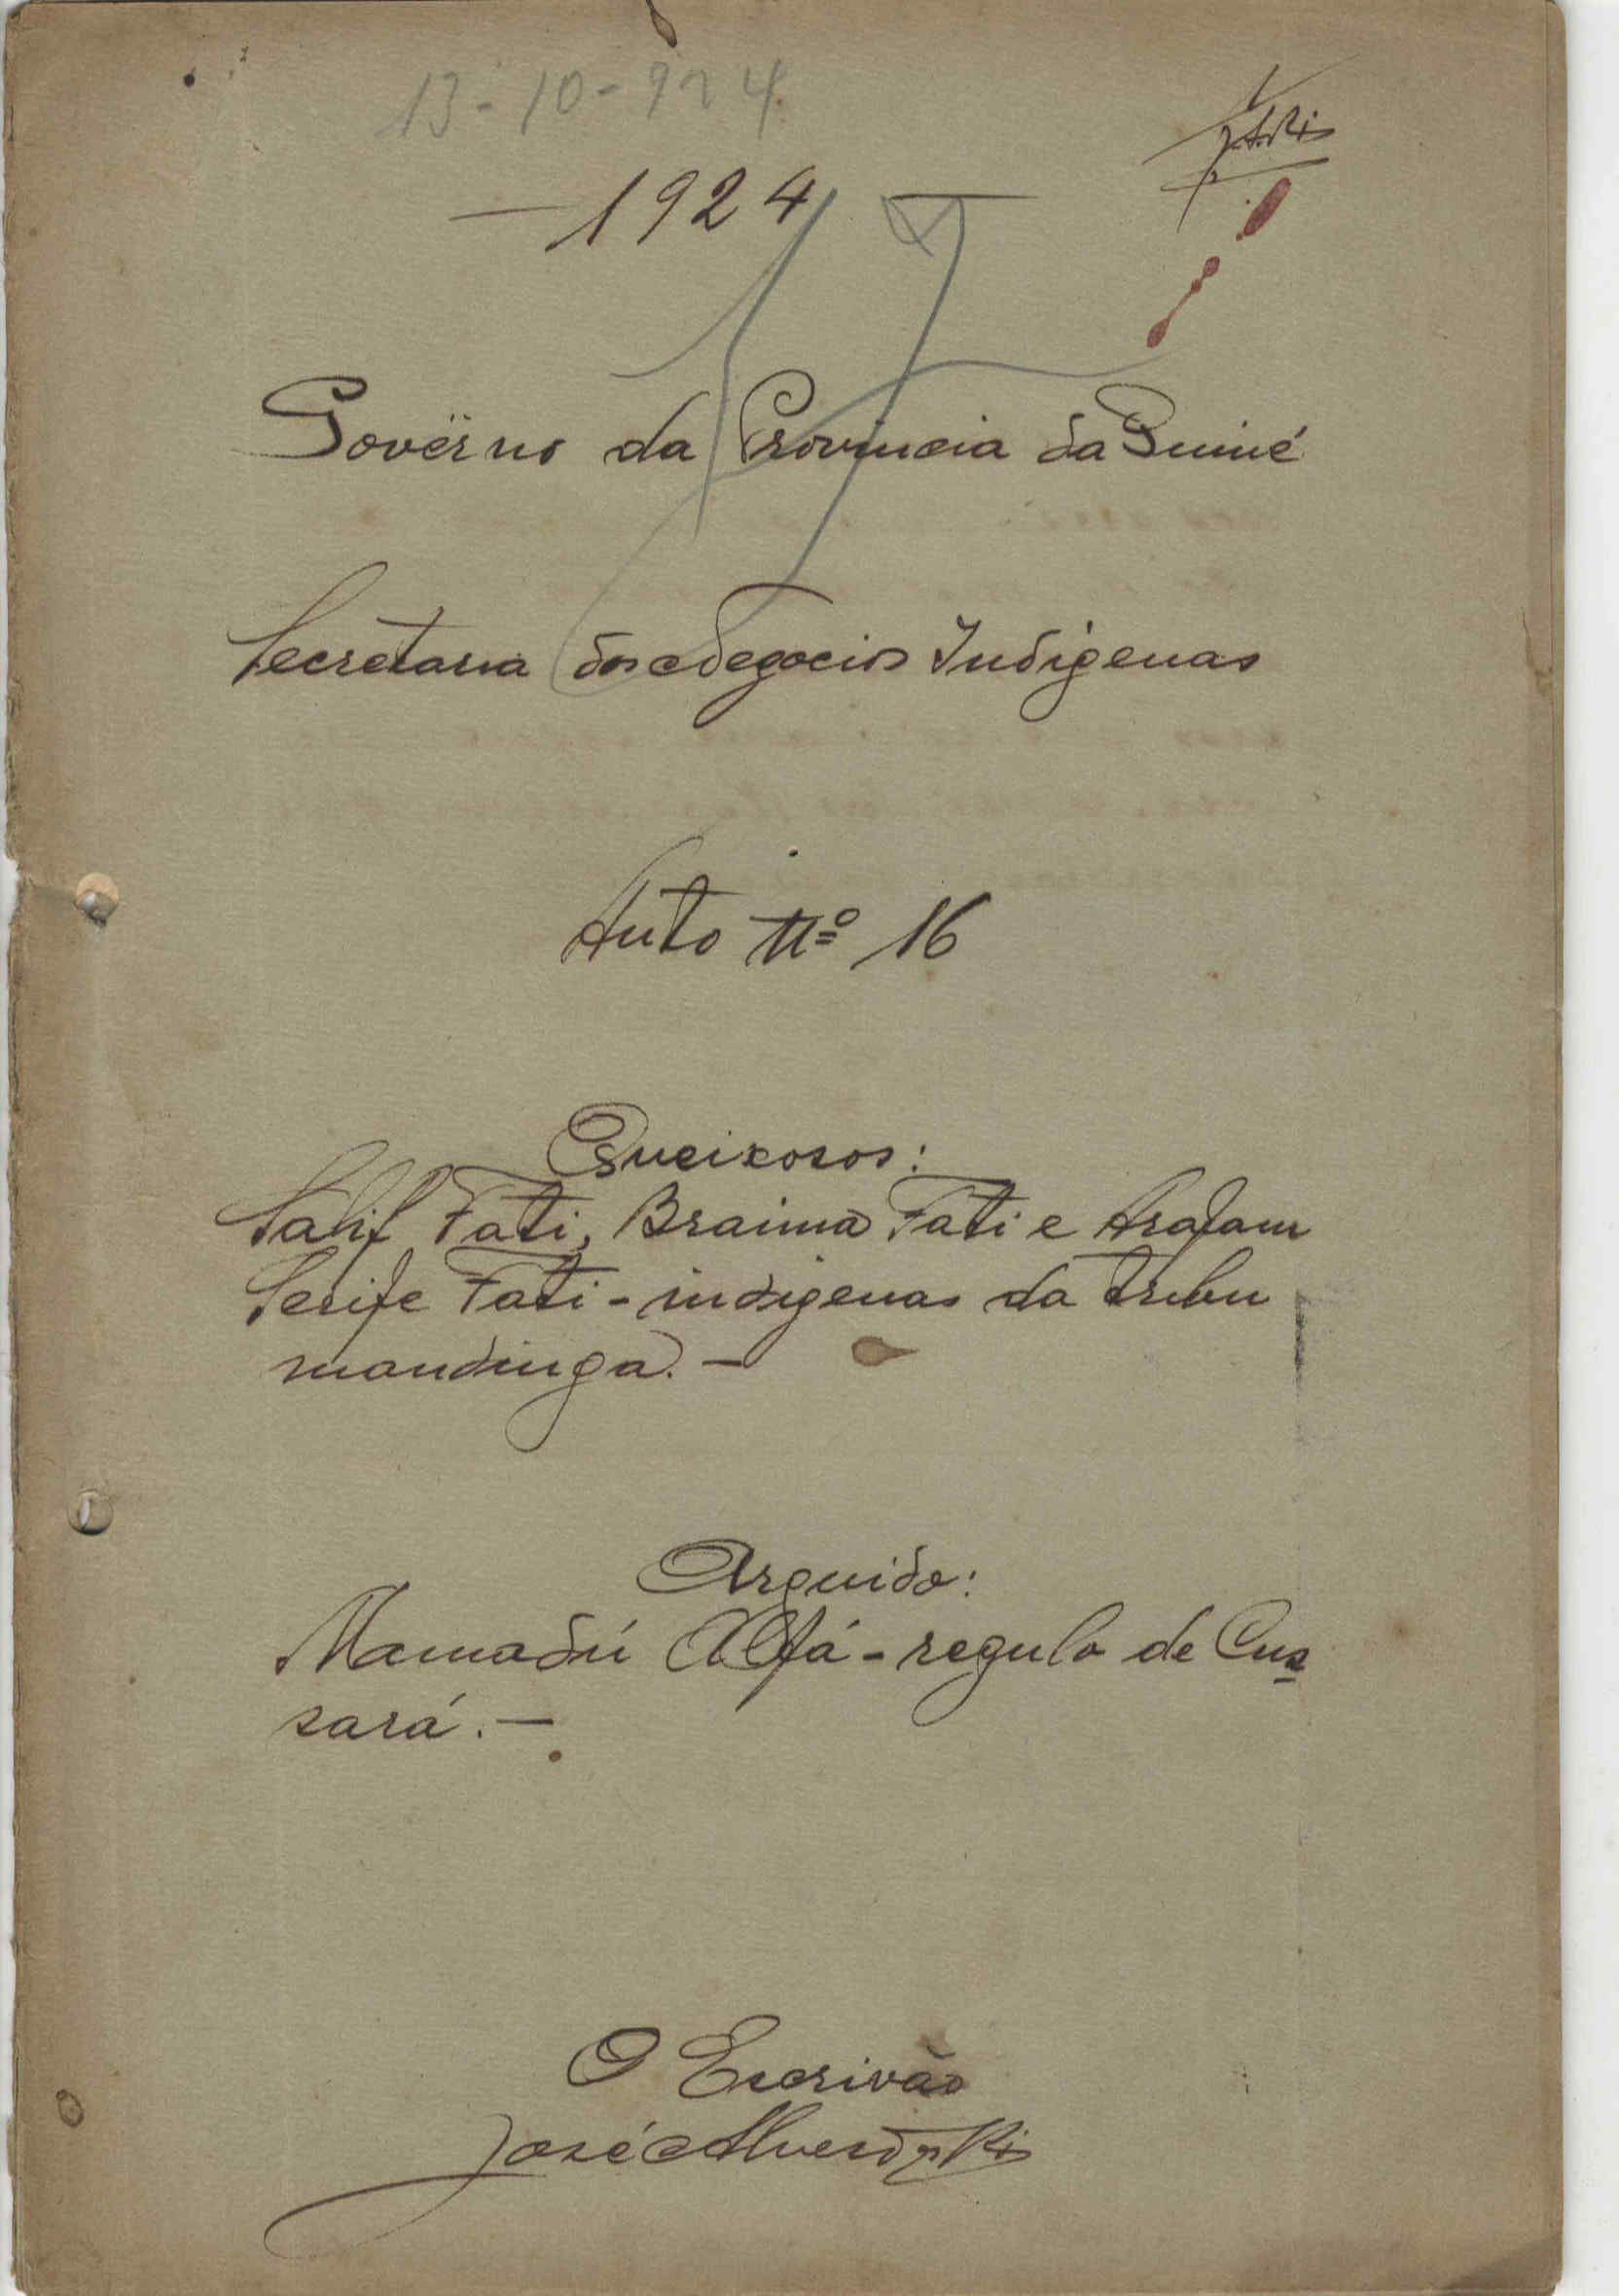 13-10-924
— 1924 —
Govêrno da Provincia da Guiné
Secretaria dos Negocios Indigenas
Auto nº 16
Queixosos:
Salif Fati, Braima Fati e Arafam
Serife Fati - indigenas da tribu
mandinga. —
Arguido:
Mamadú Alfá - regulo de Cus
sará. —
O Escrivão
José Alves dos Reis